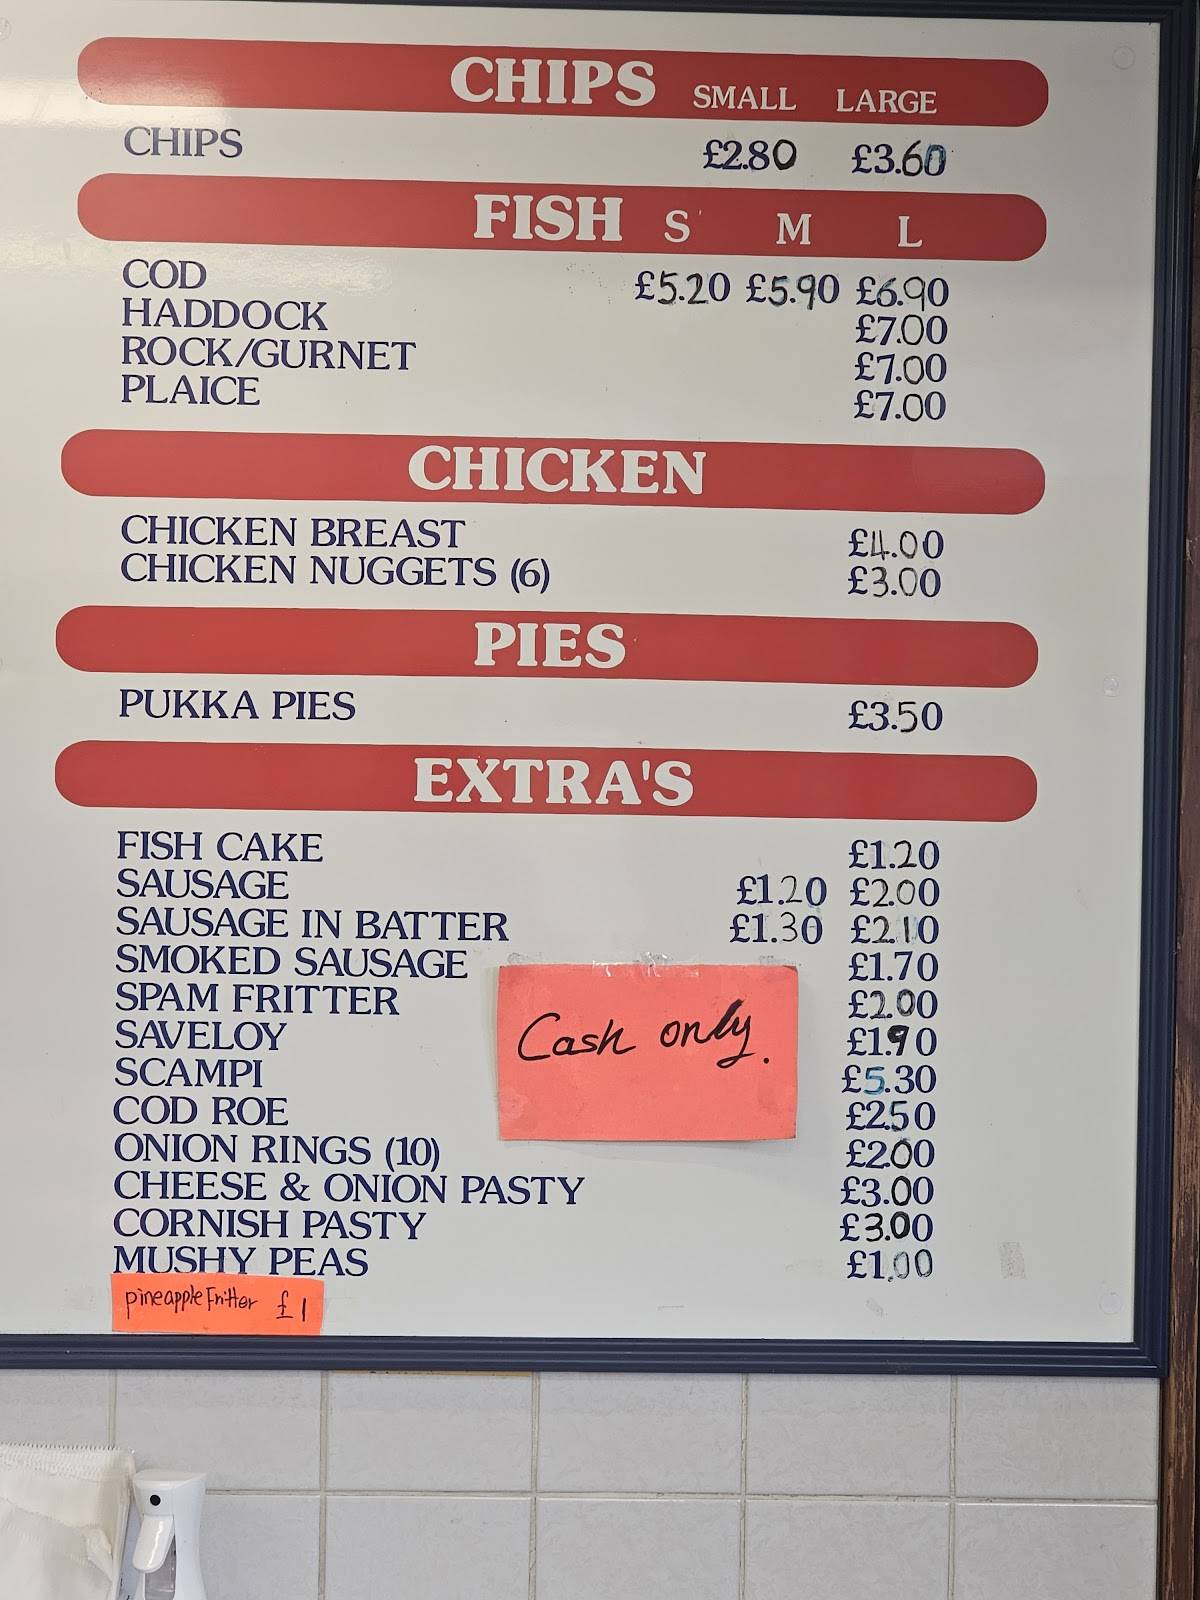 CHIPS SMALL LARGE
CHIPS £2.80 £3.60
FISH S M L
COD £5.20 £5.90 £6.90
HADDOCK £7.00
ROCK/GURNET £7.00
PLAICE £7.00
CHICKEN
CHICKEN BREAST £4.00
CHICKEN NUGGETS (6) £3.00
PIES
PUKKA PIES £3.50
EXTRA'S
FISH CAKE £1.20
SAUSAGE £1.20 £2.00
SAUSAGE IN BATTER £1.30 £2.10
SMOKED SAUSAGE £1.70
SPAM FRITTER £2.00
SAVELOY £1.90
SCAMPI £5.30
COD ROE £2.50
ONION RINGS (10) £2.00
CHEESE & ONION PASTY £3.00
CORNISH PASTY £3.00
MUSHY PEAS £1.00
pineapple Fritter £1
Cash only.